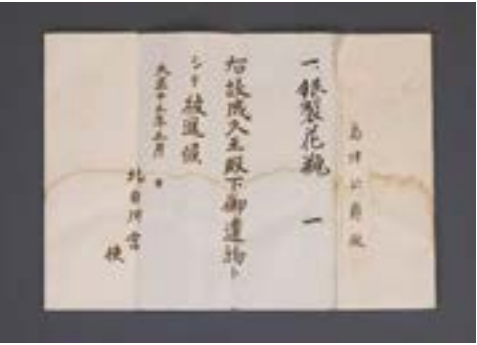 島津公爵殿
一 銀製花瓶 一
右故成久王殿下御遺物ト
シテ被進候
大正十二年五月 日
北白川宮
使